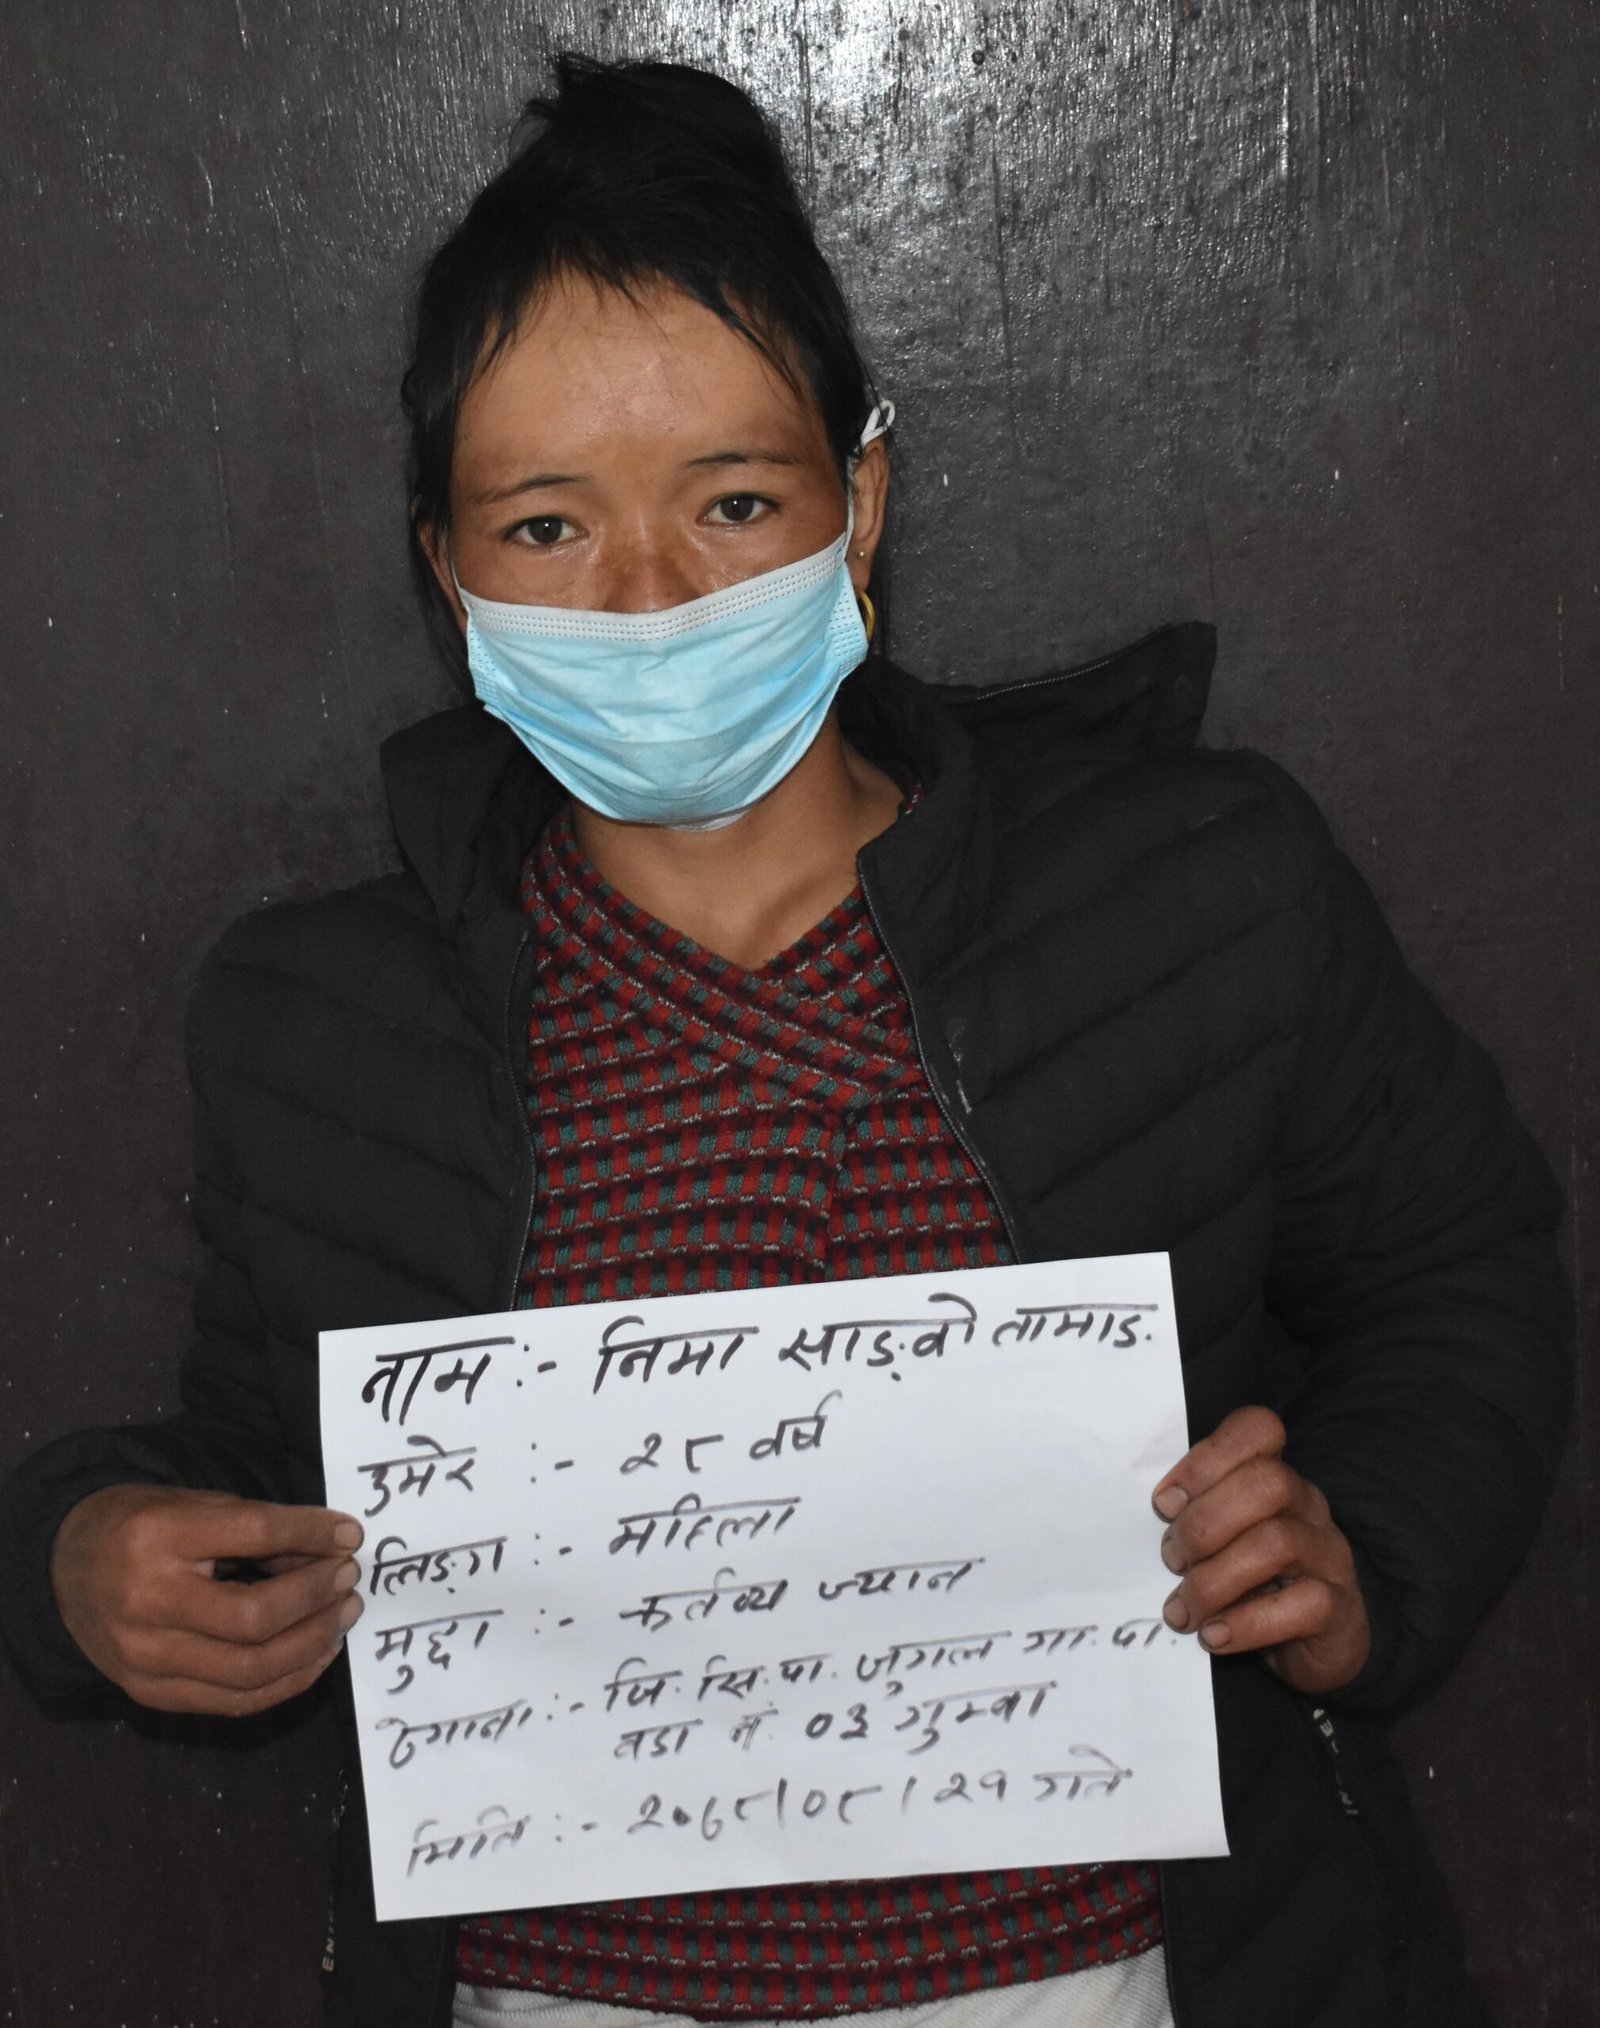 नाम :- निमा साङ्वो तामाङ.
उमेर :- २८ वर्ष
लिङ्ग :- महिला
मुद्दा :- कर्तव्य ज्यान
ठेगाना :- जि. सि.पा. जुगल गा.पा.
वडा नं. ०३ गुम्वा
मिति :- २०७८/०८/२१ गते